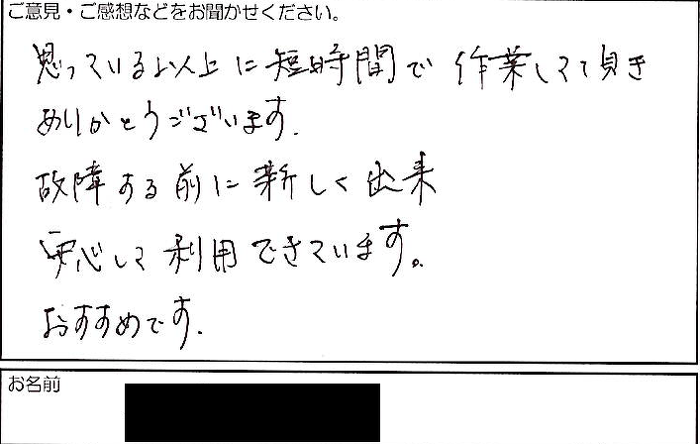 ご意見・ご感想などをお聞かせください。
思っている以上に短時間で 作業して頂き
ありがとうございます.
故障する前に新しく出来
安心して利用できています。
おすすめです.
お名前